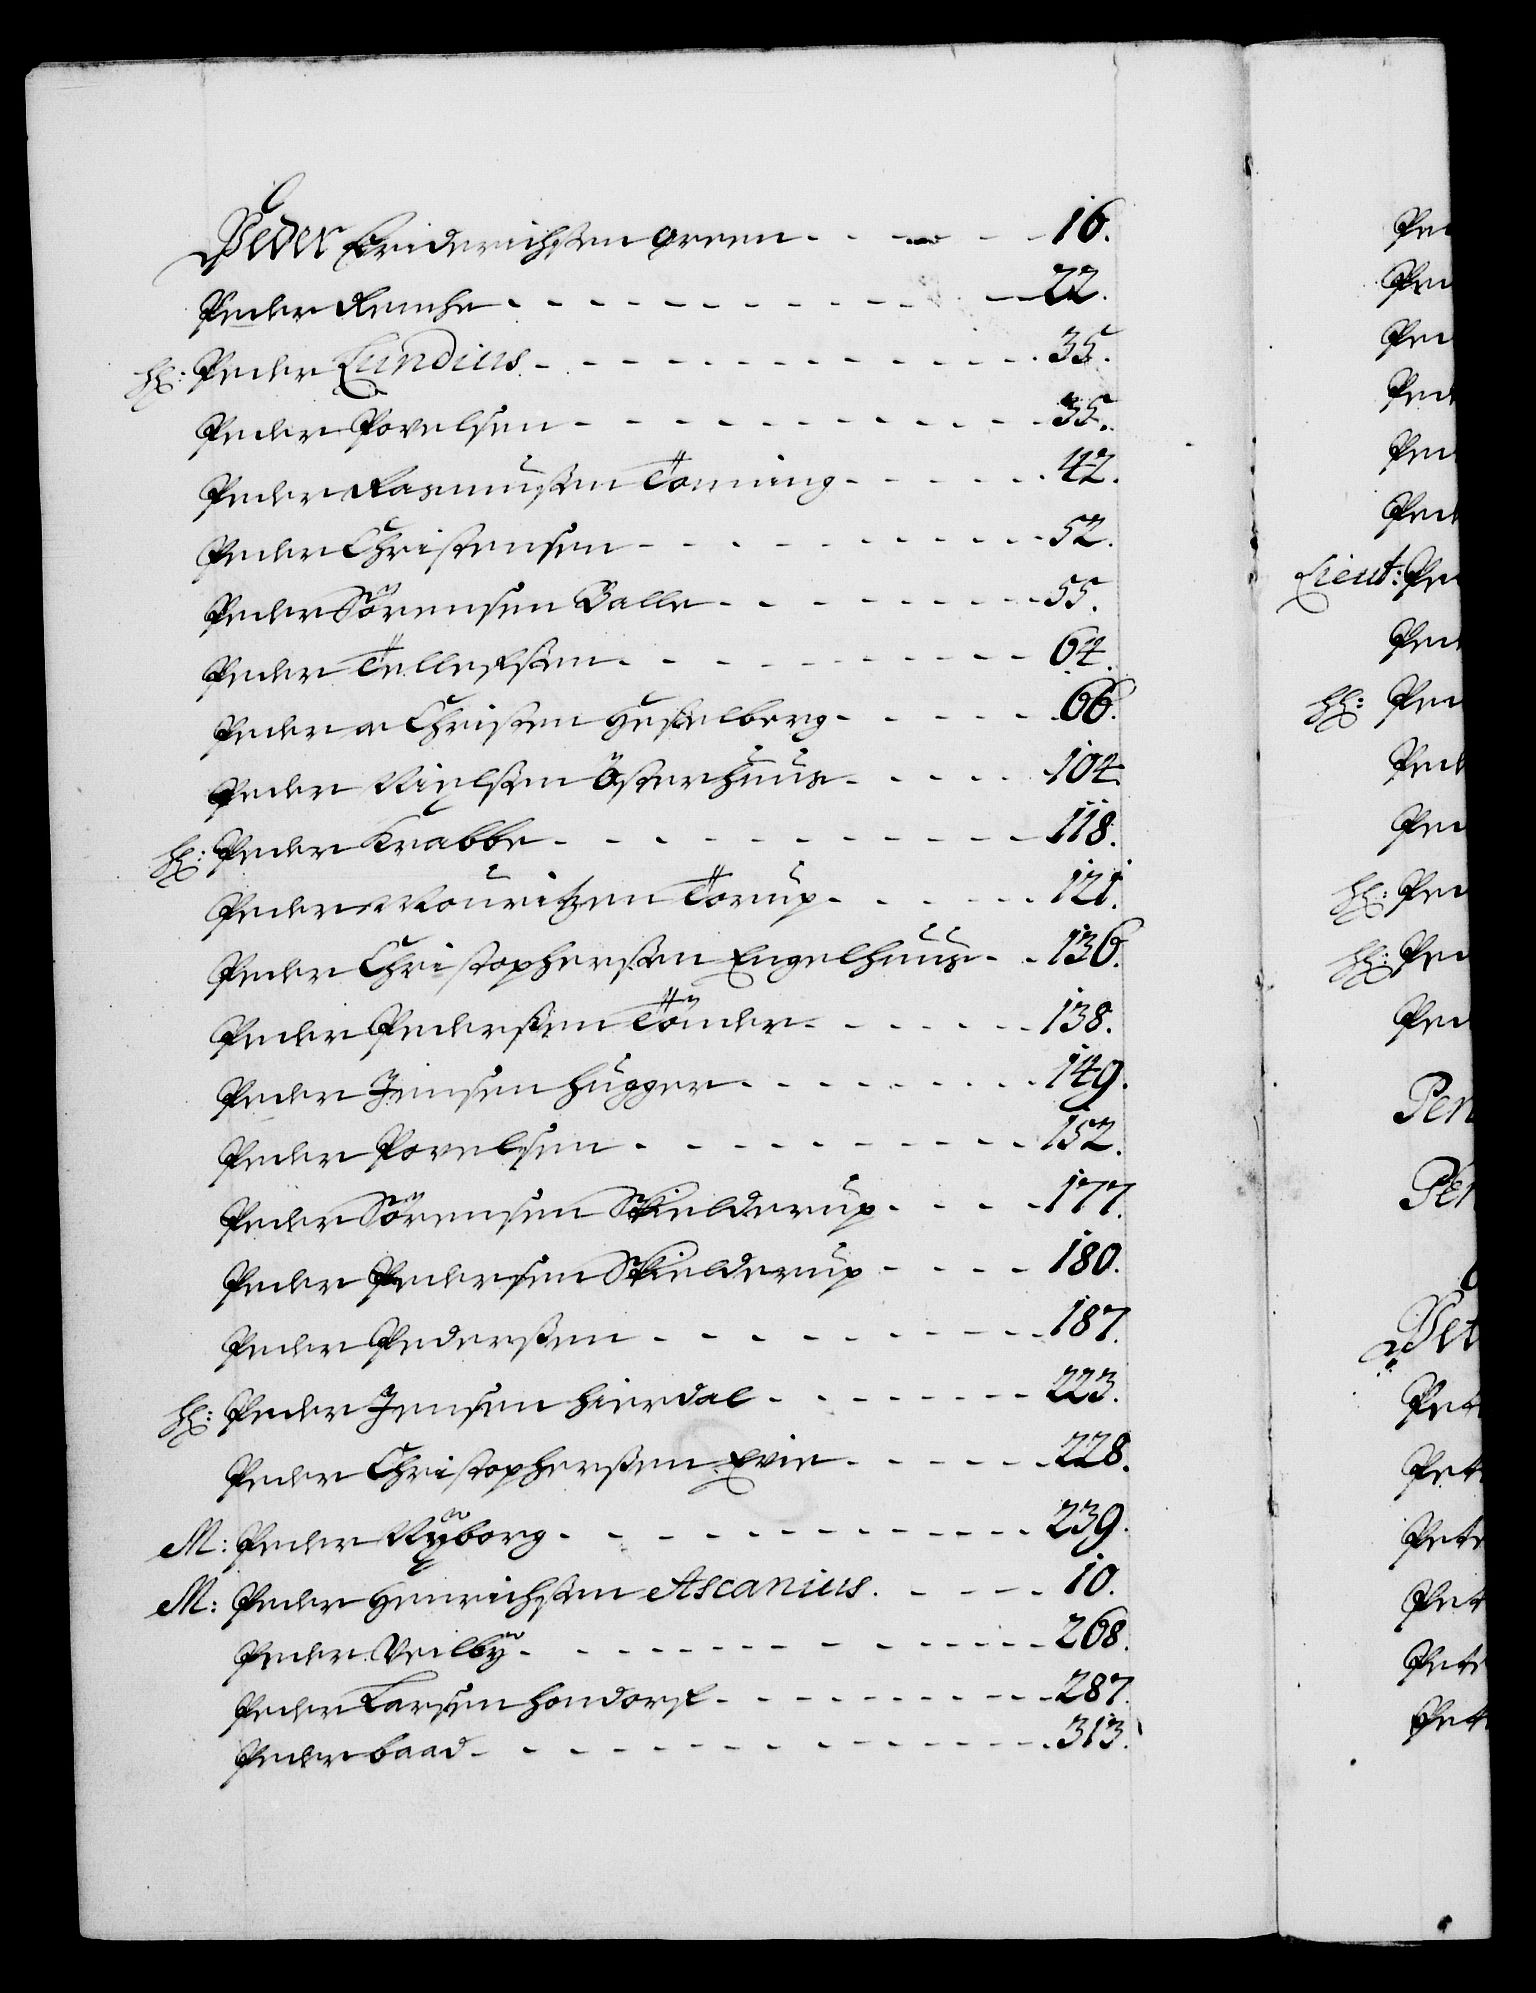 Peder Friderichsen green - - - - - 16.
Peder Remche - - - - - - - - - - 22.
Hr: Peder Lundius - - - - - - - - - - 35.
Peder Povelsen - - - - - - - - - - 35.
Peder Rasmussen Tönning - - - - - 42.
Peder Christensen - - - - - - - - - 52.
Peder Sörensen Balle - - - - - - - 55.
Peder Tellefsen - - - - - - - - - 64.
Peder a Christen Hesselberg - - - - - 66.
Peder Nielsen Österhuus - - - - - 104.
Hr: Peder Krabbe - - - - - - - - - - 118.
Peder Mouritzen Torup - - - - - 121.
Peder Christophersen Engelhuus - - 136.
Peder Pedersen Tönder - - - - - - 138.
Peder Jensen Hugger - - - - - - - 149.
Peder Povelsen - - - - - - - - - 152.
Peder Sörensen Skielderup - - - - 177.
Peder Pedersen Skielderup - - - - 180.
Peder Pedersen - - - - - - - - - 187.
Hr: Peder Jensen Hierdal - - - - - - - 223.
Peder Christophersen Evie - - - - - 228.
M: Peder Nÿborg - - - - - - - - - - 239.
M: Peder Henrichsen Ascanius - - - - 10.
Peder Veilbÿ - - - - - - - - - - 268.
Peder Larsen Hondorf - - - - - - - - 287.
Peder baad - - - - - - - - - - - 313.
Lieut:
Hr:
Hr:
Hr: